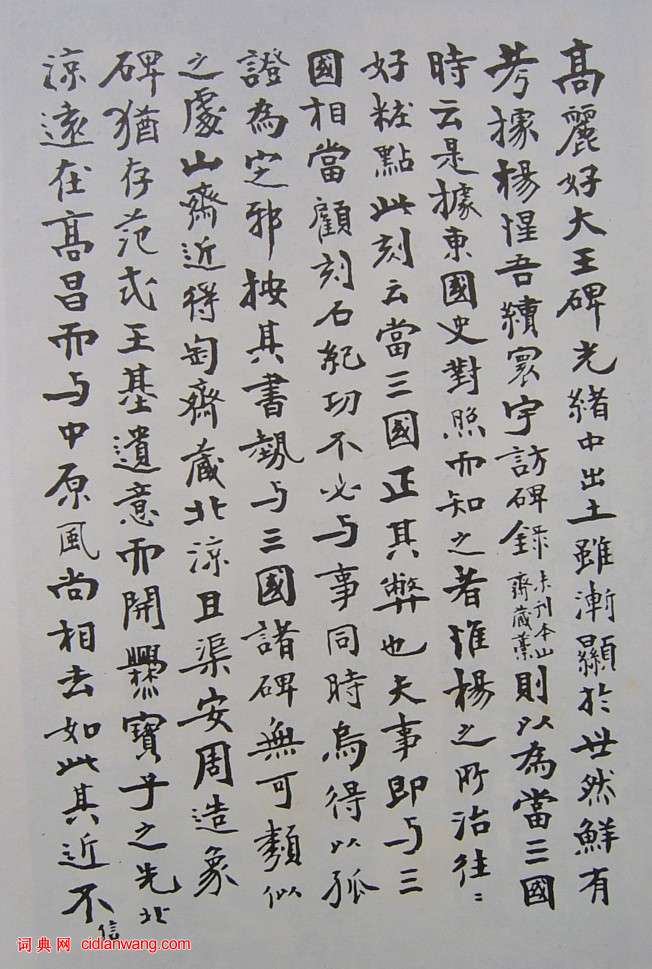 高麗好大王碑光緒中出土雖漸顯於世然鮮有
考據楊惺吾續寰宇訪碑錄未刊本山齋藏藁則以為當三國
時云是據東國史對照而知之者惟楊之所治往〻
好粧點此刻云當三國正其弊也夫事即与三
國相當顧刻石紀功不必与事同時烏得以孤
證為定邪按其書勢与三國諸碑無可類似
之處山齋近得匋齋藏北涼且渠安周造象
碑猶存范式王基遺意而開爨寶子之先北
涼遠在高昌而与中原風尚相去如此其近不信
词典网 cidianwang.com